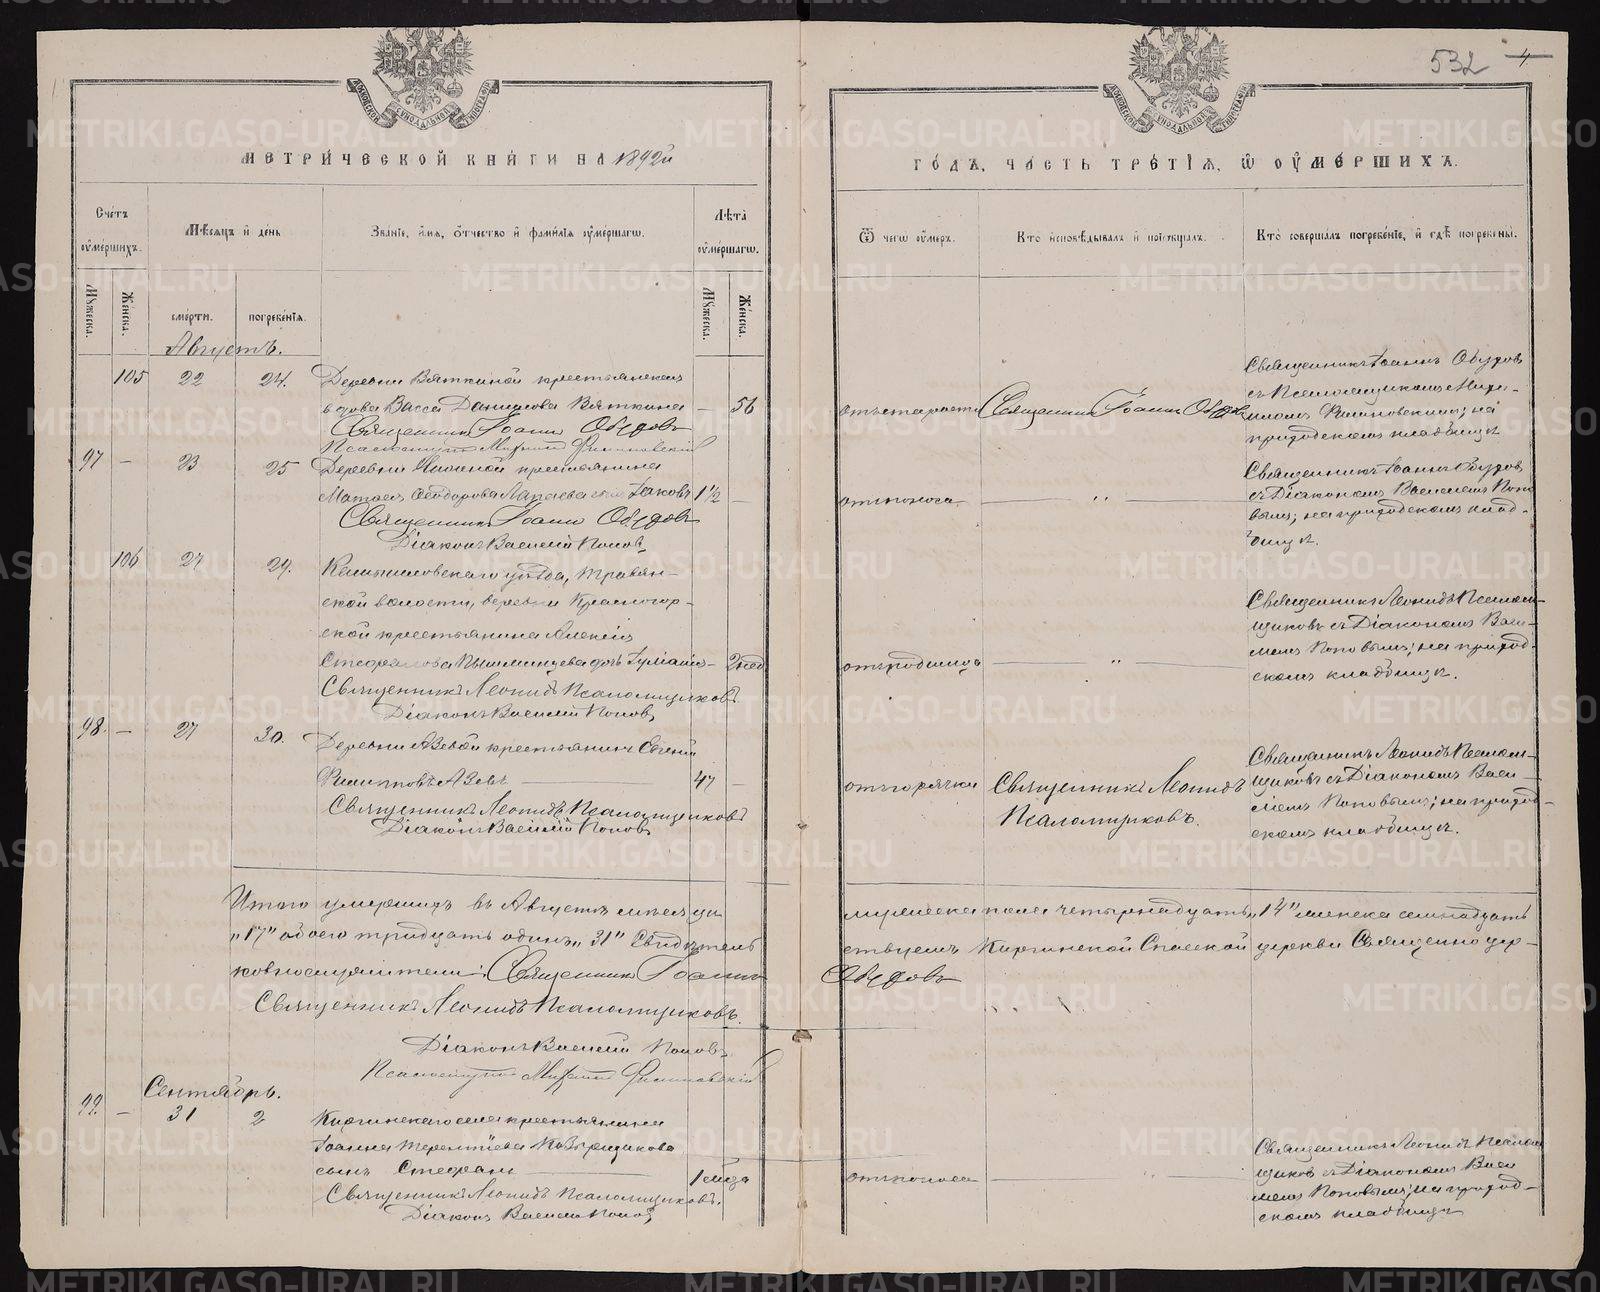 532 4
МЕТРИ́ЧЕСКОЙ КНИ́ГИ НА 1892й
ГО́ДЪ, ЧАСТЬ ТРЕ́ТІЯ, Ѿ ОУ҆МЕ́РШИХЪ.
Счетъ оу҆ме́ршихъ.
Мѣсяцъ и де́нь
Зва́нїе, и҆мя, о҆́тчество и фами́лїя оу҆ме́ршагѡ.
Лѣта̀ оу҆ме́ршагѡ.
Ѿ чегѡ̀ оу҆́меръ.
Кто̀ и҆сповѣ́дывалъ и прїобща́лъ.
Кто̀ соверша́лъ погребе́нїе, и гдѣ̀ погребены̀.
Мꙋ́жеска.
Же́нска.
сме́рти.
погребе́нїя.
Мꙋ́жеска.
Же́нска.
Августъ.
105 22 24. Деревни Вяткиной крестьянская
вдова Васса Данилова Вяткина — 56
Священник Іоанн Обудов
Псаломщик Михаил Филиповский
отъ старости Священник Іоанн Обудов
Священникъ Іоаннъ Обудов
съ Псаломщикомъ Миха-
иломъ Филиповским; на
приходскомъ кладбищѣ
97 — 23 25 Деревни крестьянина
Матвея Ѳеодорова сын Іаковъ 1½ —
Священник Іоанн Обудовъ
Діаконъ Василий Поповъ
отъ поноса — „ —
Священникъ Іоаннъ Обудов
съ Діакономъ Василиемъ Попо
вымъ; на приходскомъ клад-
бищѣ.
106 27 29. Камышловскаго уѣзда, Травян-
ской волости, деревни Красногор-
ской крестьянина Алексѣя
Стефанова Пышминцева дочь Іуліанія — 2 нед
Священникъ Леонидъ Псаломщиковъ
Діаконъ Василий Поповъ
отъ родимца — „ —
Священникъ Леонидъ Псалом-
щиковъ съ Діакономъ Васи-
лиемъ Поповымъ; на приход-
скомъ кладбищѣ.
98. — 27 30. Деревни Азевой крестьянинъ Евгений
Филипповъ Азевъ — 47 —
Священникъ Леонидъ Псаломщиковъ
Діаконъ Василий Поповъ
отъ горячки Священникъ Леонидъ
Псаломщиковъ.
Священникъ Леонидъ Псалом-
щиковъ съ Діакономъ Васи-
лиемъ Поповымъ; на приход-
скомъ кладбищѣ.
Итого умершихъ въ Августѣ мѣсяцѣ мужеска пола четырнадцать „14“ женска семнадцать
„17“ обоего тридцать одинъ „31“ Свидѣтельствуемъ Киргинской Спасской церкви Священноцер-
ковнослужители: Священник Іоанн Обудовъ
Священникъ Леонидъ Псаломщиковъ.
Діаконъ Василий Поповъ.
Псаломщик Михаил Филиповский
Сентябрь.
99. — 31 2 Киргинскаго села крестьянина
Іоанна Терентіева
сынъ Стефанъ — 1 мѣсяца
Священникъ Леонидъ Псаломщиковъ.
Діаконъ Василий Поповъ
отъ поноса —
Священникъ Леонидъ Псалом
щиков съ Діакономъ Васи
лиемъ Поповымъ; на приход-
скомъ кладбищѣ
METRIKI.GASO-URAL.RU